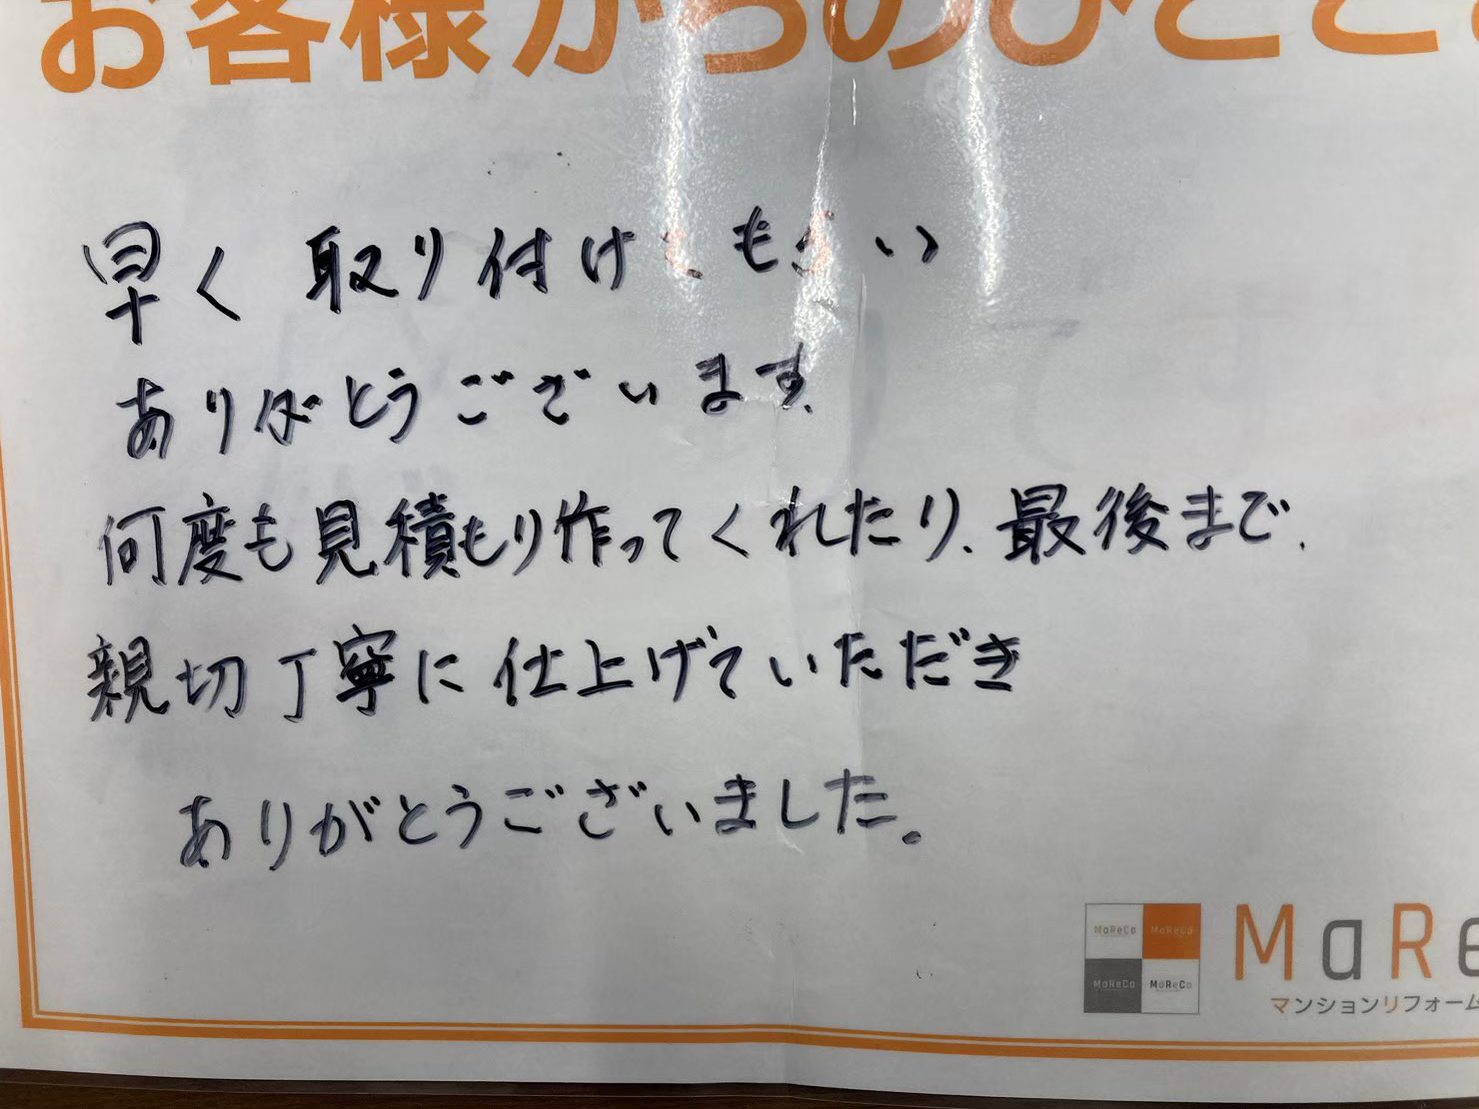 お客様からのひとこと
早く取り付けてもらい
ありがとうございます
何度も見積もり作ってくれたり、最後まで、
親切丁寧に仕上げていただき
ありがとうございました。
MaReCo MaReCo
MaReCo MaReCo
MaRe
マンションリフォーム